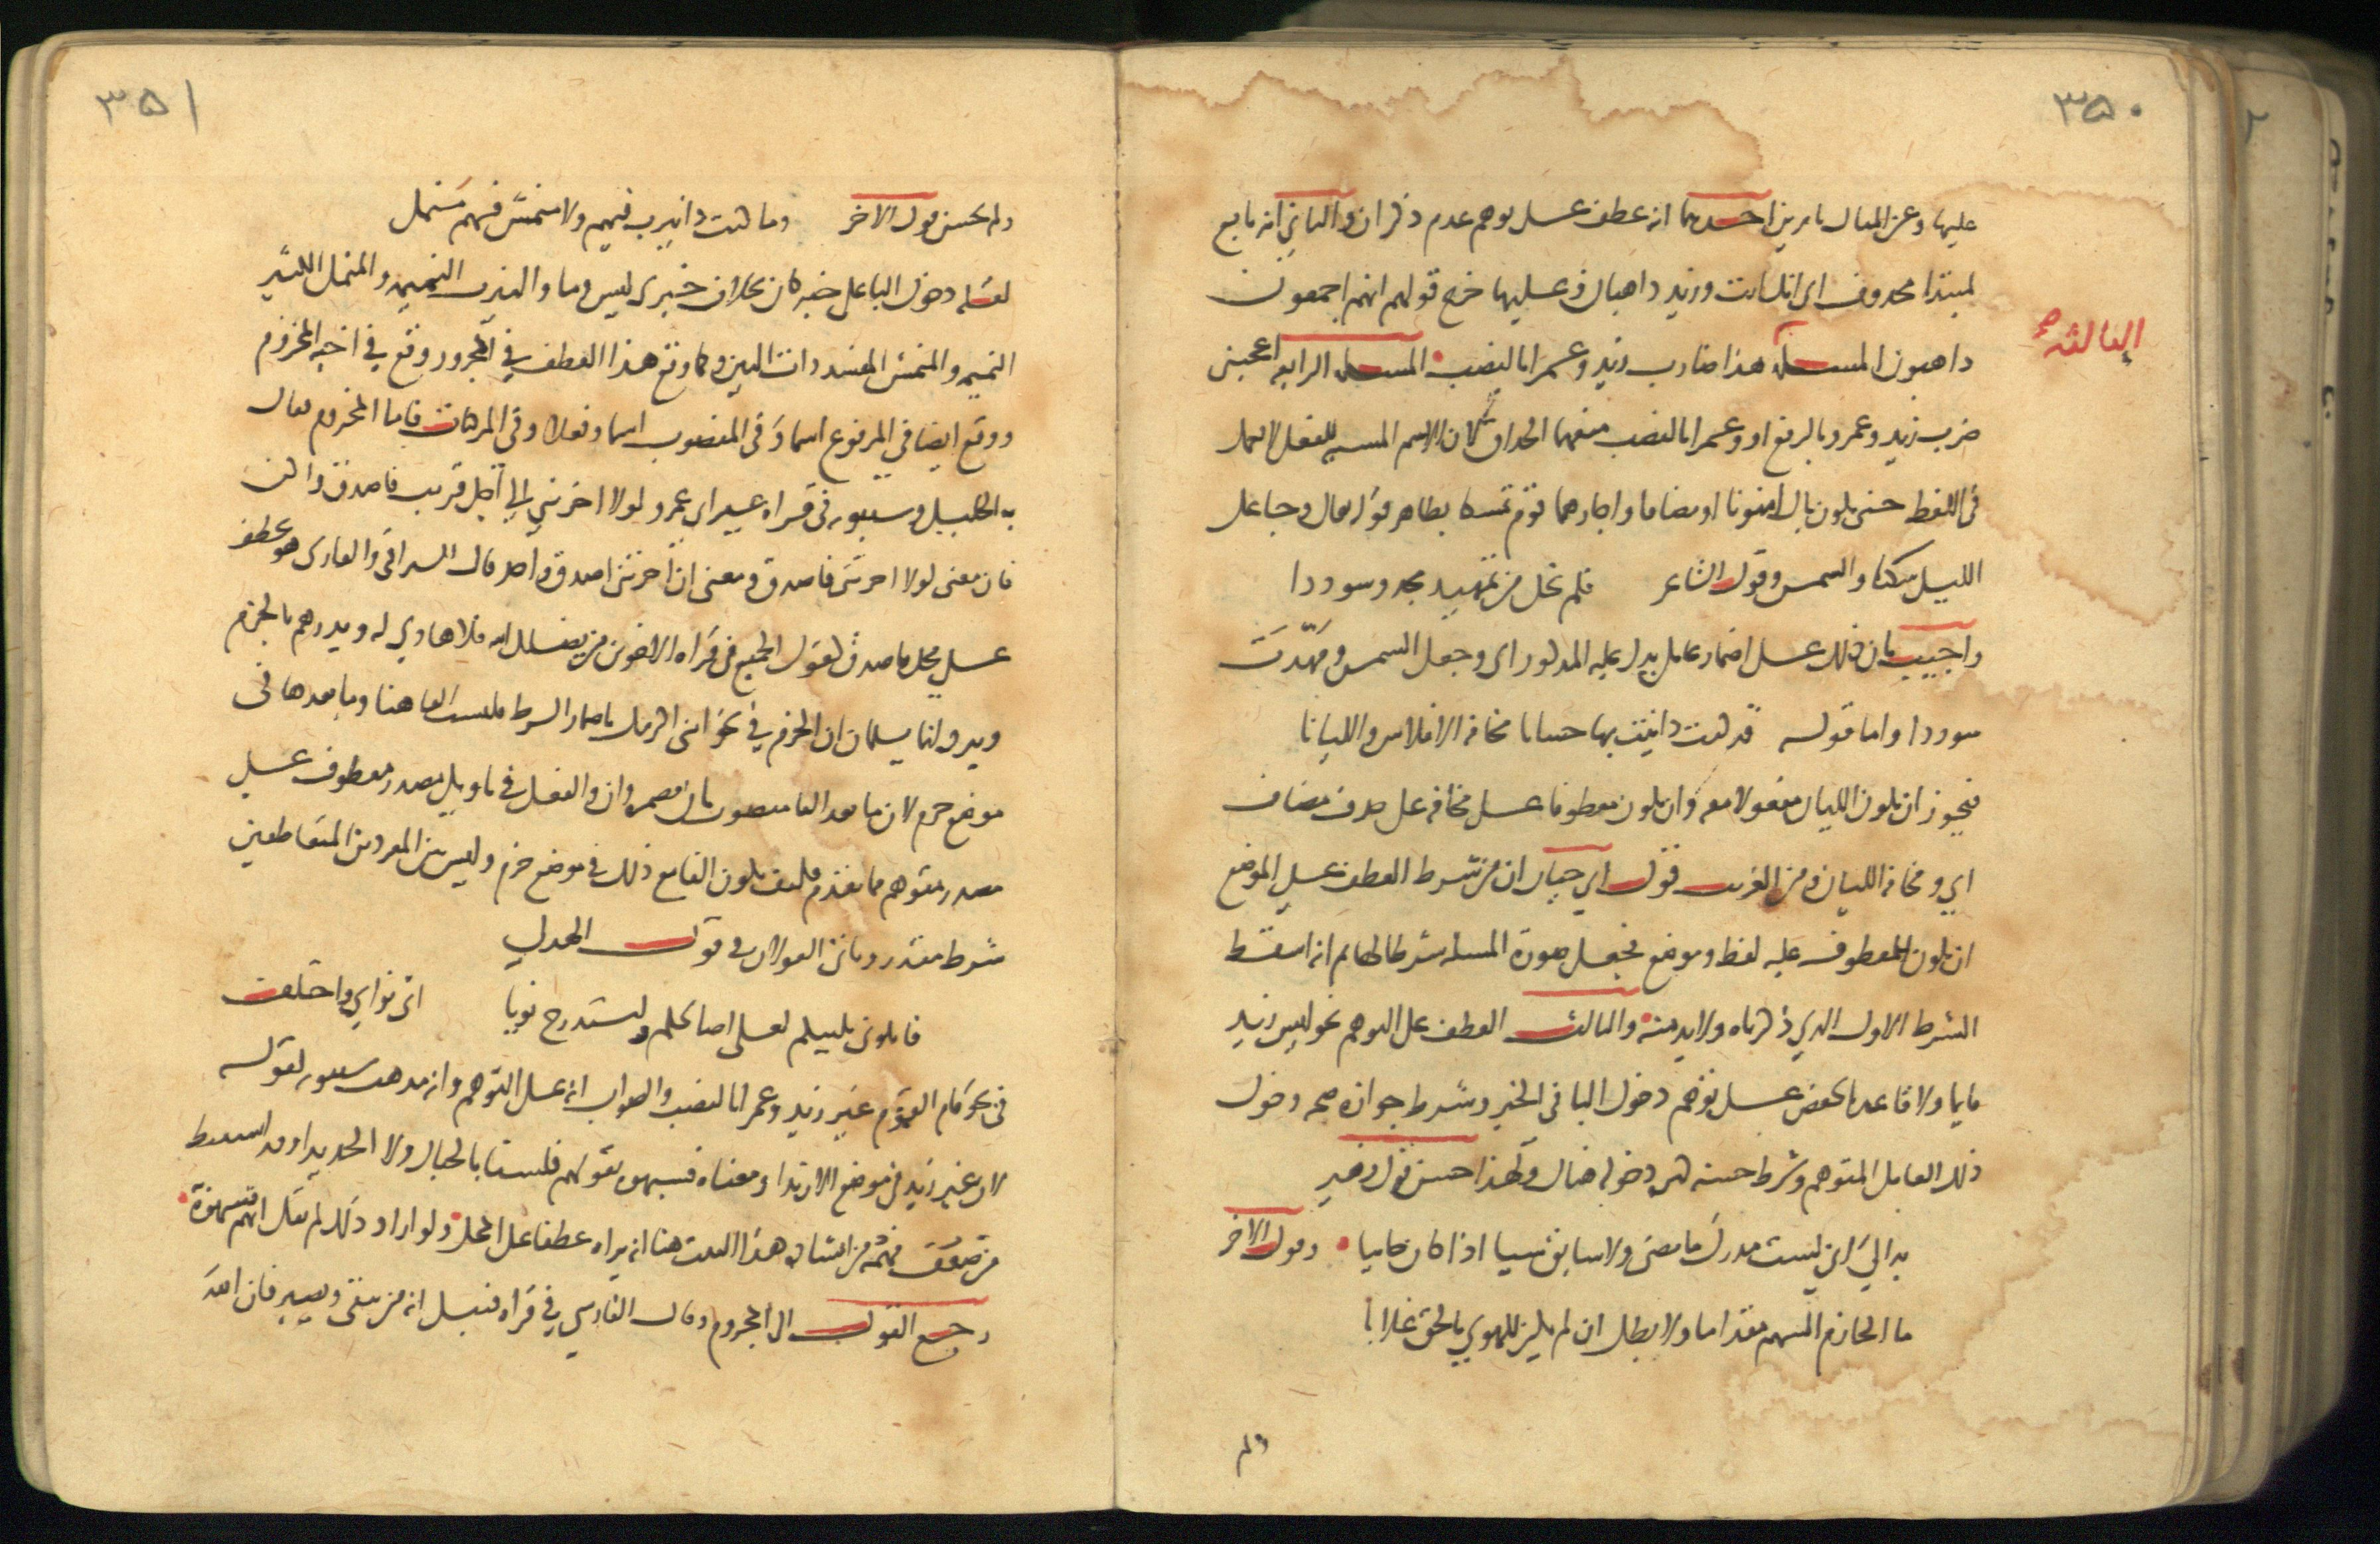 ٣٥٠
عليها وعن المثال بامرين احدهما انه عطف على توهم عدم ذكر ان والثاني انه تابع
لمبتدا محذوف اي انك انت وزيد ذاهبان وعليهما خرج قولهم انهم اجمعون
ذاهبون المسئلة هذا ضارب زيد وعمرا بالنصب المسئلة الرابعة اعجبني
الثالثة صح
ضرب زيد وعمرو بالرفع او وعمرا بالنصب منعهما الحذاق لان الاسم المشبه للفعل لا يعمل
في اللفظ حتى يكون بال او منونا او مضافا واجازهما قوم تمسكا بظاهر قوله تعالى وجاعل
الليل سكنا والشمس وقول الشاعر فلم تخل من تمهيد مجد وسوددا
واجيب بان ذلك على اضمار عامل يدل عليه المذكور اي وجعل الشمس ومهّدت
سوددا واما قوله قد كنت داينت بها حسانا مخافة الافلاس والليانا
فيجوز ان يكون الليان مفعولا معه وان يكون معطوفا على مخافة على حذف مضاف
اي ومخافة الليان ومن الغريب قول ابي حيان ان من شرط العطف على الموضع
ان يكون للمعطوف عليه لفظ وموضع فجعل صورة المسئلة شرطا لها ثم انه اسقط
الشرط الاول الذي ذكرناه ولا بد منه والثالث العطف على التوهم نحو ليس زيد
قايما ولا قاعد بالخفض على توهم دخول البا في الخبر وشرط جوازه صحة دخول
ذلك العامل المتوهم وشرط حسنه كثرة دخوله هناك ولهذا حسن قول زهير
بدا لي اني لست مدرك ما مضى ولا سابق شيا اذا كان جائيا وقول الاخر
ما الحازم الشهم مقداما ولا بطل ان لم يكن للهوى بالحق غلابا
ولم
٣٥١
ولم يحسن قول الاخر وما كنت ذا نيرب فيهم ولا منمش فيهم منمل
لقلة دخول البا على خبر كان بخلاف خبري ليس وما والنيرب النميمة والمنمل الكثير
النميمة والمنمش المفسد ذات البين وكما وقع هذا العطف في المجرور وقع في اخيه المجزوم
ووقع ايضا في المرفوع اسما وفي المنصوب اسما وفعلا وفي المركبات فاما المجزوم فقال
به الخليل وسيبويه في قراءة غير ابي عمرو لولا اخرتني الى اجل قريب فاصدق واكن
فان معنى لولا اخرتني فاصدق ومعنى ان اخرتني اصدق واحد وقال السيرافي والفارسي هو عطف
على محل فاصدق كقول الجميع في قراءة الاخوين من يضلل الله فلا هادي له ويذرهم بالجزم
ويرد انهما يسلمان ان الجزم في نحو ائتني اكرمك باضمار الشرط فليست الفا هنا وما بعدها في
موضع جزم لان ما بعد الفا منصوب بان مضمرة وان والفعل في تاويل مصدر معطوف على
مصدر متوهم مما تقدم فكيف يكون الفا مع ذلك في موضع جزم وليس بين المفردين المتعاطفين
شرط مقدر وياتي القولان في قول الهذلي
فابلوني بليتكم لعلي اصالحكم واستدرج نويا اي نواي واختلف
في نحو قام القوم غير زيد وعمرا بالنصب والصواب انه على التوهم وانه مذهب سيبويه لقوله
لان غير زيد في موضع الا زيدا ومعناه فشبهوه بقولهم فلسنا بالجبال ولا الحديدا وقد استنبط
من ضعف فهمه من انشاد هذا البيت هنا انه يراه عطفا على المحل ولو اراد ذلك لم يقل انهم شبهوه
رجع القول الى المجزوم وقال الفارسي في قراءة قنبل انه من يتقي ويصبر فان الله